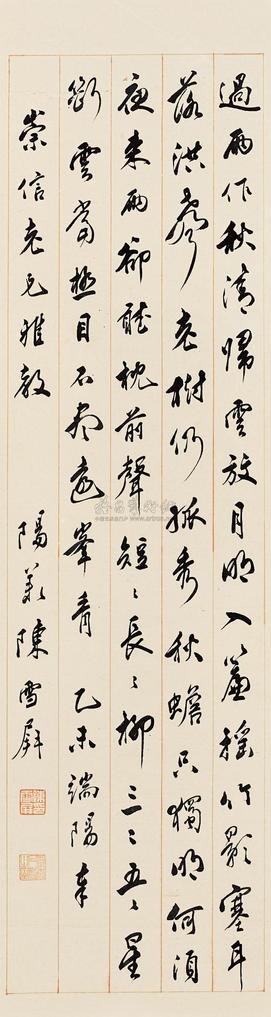 過雨作秋清歸雲放月明入簾搖竹影塞耳
落洪聲老樹仍孤秀秋蟾只獨明何須
夜來雨卻聽枕前聲短〻長〻柳三〻五〻星
斷雲當極目不盡遠峯青 乙未端陽奉
崇信老兄雅教 陽羨陳雪屏